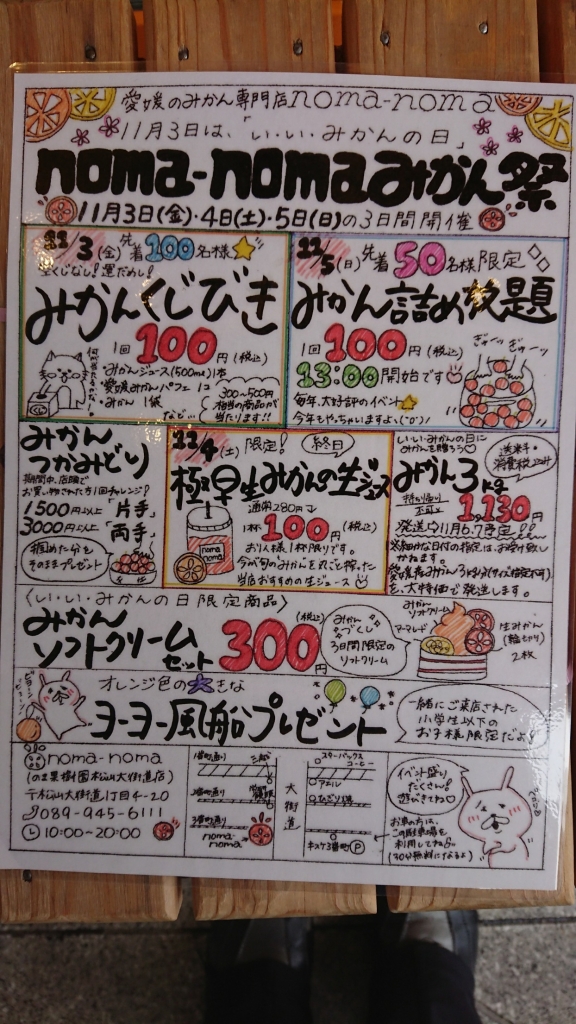 愛媛のみかん専門店noma-noma
11月3日は、「い・い・みかんの日」
noma-nomaみかん祭
11月3日(金)・4日(土)・5日(日)の3日間開催
11/3(金)先着100名様
空くじなし!運だめし!
みかんくじびき
1回100円(税込)
みかんジュース(500ml)1本
・愛媛みかんパフェ 1コ
・みかん 1袋
など…
300〜500円
相当の商品が
当たります!!
11/5(日)先着50名様限定
みかん詰め放題
1回100円(税込)
13:00開始です
毎年、大好評のイベント
今年もやっちゃいますよ
ぎゅーッ ぎゅーッ
みかん
つかみどり
期間中、店頭で
お買い物された方1回チャレンジ!
1500円以上「片手」
3000円以上「両手」
掴めた分を
そのままプレゼント
11/4(土)限定!
終日
極早生みかんの生ジュース
通常280円→
1杯100円(税込)
お1人様1杯限りです。
当店おすすめの生ジュース
noma
noma
い・い・みかんの日に
みかんを贈ろう
送料・
消費税込み
みかん3kg
持ち帰り
不可
1,130円
発送→11月6.7予定!!
※細かな日付の指定は、お受け致し
かねます。
愛媛産みかん3キロ(サイズ指定不可)
を、大特価で発送します。
〈い・い・みかんの日限定商品〉
みかん
ソフトクリーム
セット300円
(税込)
みかん
づくし
3日間限定の
ソフトクリーム
みかん
ソフトクリーム
マーマレード
生みかん
(輪切り)
2枚
オレンジ色の大きな
ヨーヨー風船プレゼント
一緒にご来店された
小学生以下の
お子様限定だよ!
noma-noma
(のま果樹園 松山大街道店)
〒松山大街道1丁目4-20
089-945-6111
10:00〜20:00
1番町通り
三越
2番町通り
3番町通り
noma-
noma
大街道
スターバックス
コーヒー
アエル
キスケ3番町P
イベント盛り
だくさん!
遊びきてね
お車の方は、
この駐車場を
利用してね
(30分無料になるよ)